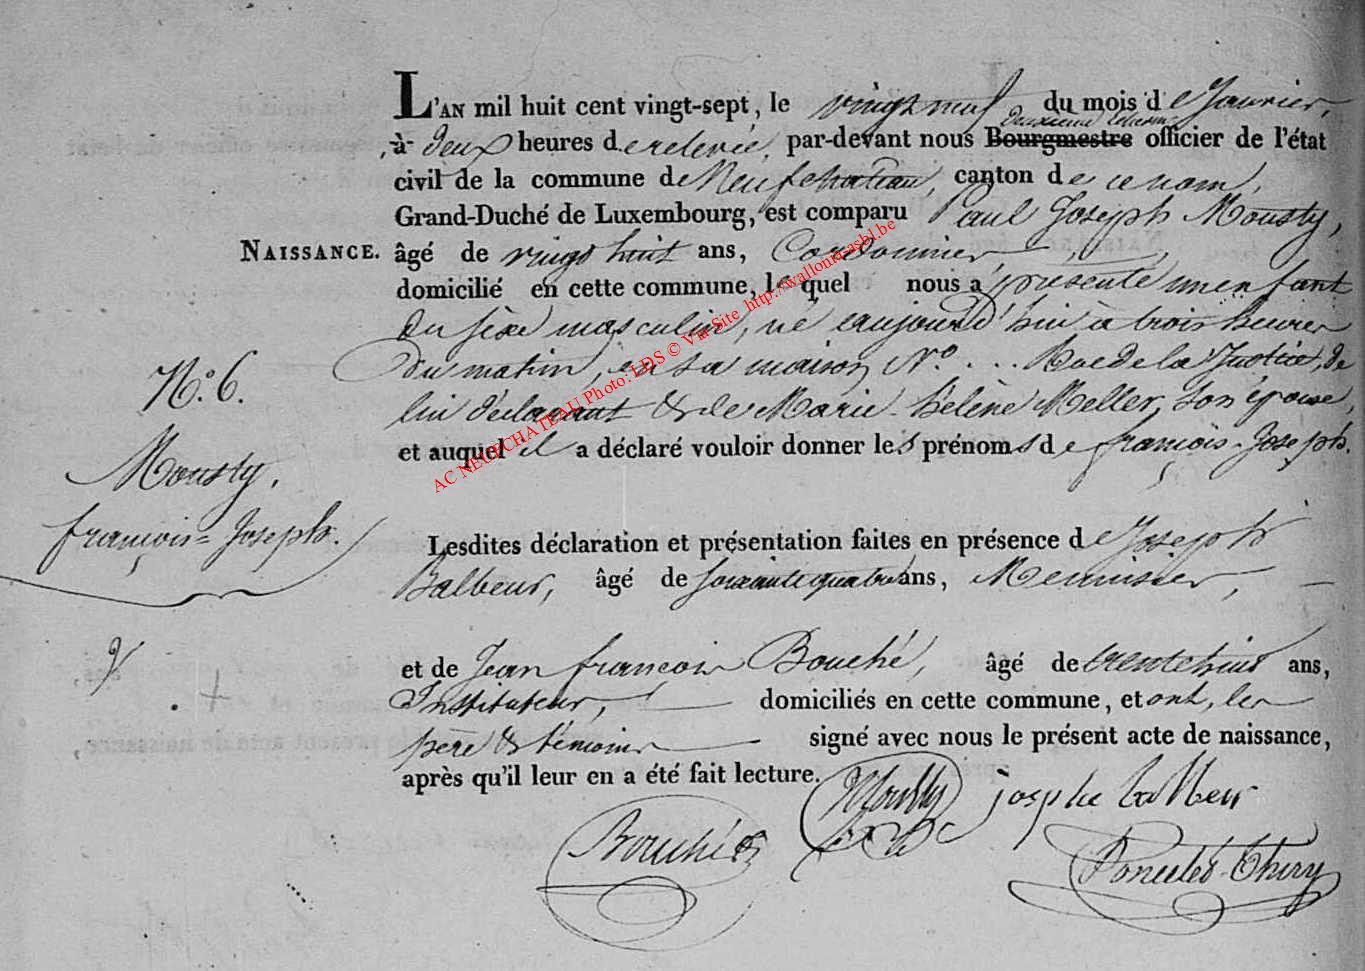 L'AN mil huit cent vingt-sept, le vingt neuf du mois de Janvier,
à deux heures de relevée, par-devant nous deuxième échevin Bourgmestre officier de l'état
civil de la commune de Neufchateau, canton de ce nom,
Grand-Duché de Luxembourg, est comparu Paul Joseph Mousty,
NAISSANCE. âgé de vingt huit ans, Cordonnier,
domicilié en cette commune, lequel nous a présenté un enfant
du sèxe masculin, né aujourd'hui à trois heures
du matin, en sa maison N.° . . . Rue de la Justice, de
lui déclarant & de Marie-hélène Meller, son épouse,
et auquel il a déclaré vouloir donner les prénoms de françois-Joseph.
N.° 6.
Mousty,
françois=Joseph.
Lesdites déclaration et présentation faites en présence de Joseph
Balbeur, âgé de soixante quatre ans, Menuisier,
et de Jean françois Bouché, âgé de trente huit ans,
Instituteur, domiciliés en cette commune, et ont, les
père & témoins signé avec nous le présent acte de naissance,
après qu'il leur en a été fait lecture.
Mousty
josphe balbeur
Bouché
Poncelet-Thiry
AC NEUFCHATEAU Photo: LDS © Via Site http://wallonia.asbl.be